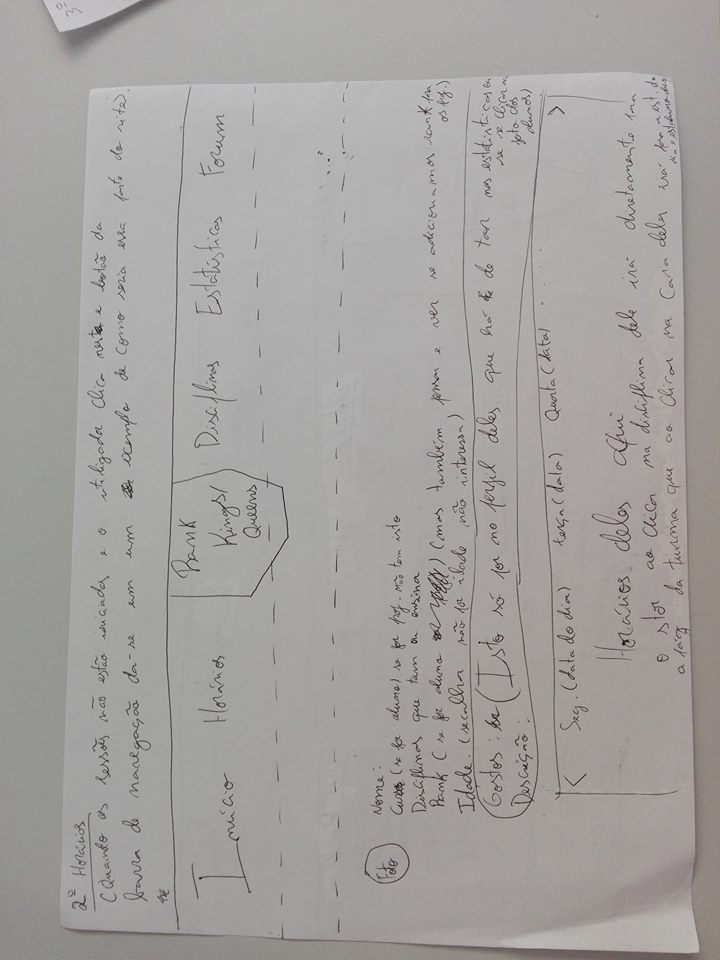 3º
2º Horários
(Quando as sessões não estão iniciadas e o utilizador clica neste botão da
barra de navegação dá-se em um exemplo de como seria essa parte do site).
Início Horários Rank Kings/ Queens Disciplinas Estatísticas Forum
Foto
Nome:
Curso (se for aluno) se for prof. não tem isto
Disciplinas que tem ou ensina
Rank (se for aluno) (mas também pensar e ver se adicionamos rank pra os prof.)
Idade. (se calhar não por idade não interessa)
Gostos: (Isto só por no perfil deles que há de tar nas estatísticas ou se se clicar na foto dos alunos)
Descrição:
< Seg. (data do dia) terça (data) Quarta (data) . . . . >
Horários deles aqui
o stor ao clica na disciplina dele irá diretamente pra
a pág. da turma que ao clicar na cara deles irá para a est. da